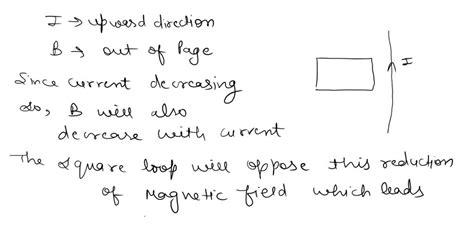 I → upward direction
B → out of Page
Since current decreasing
so, B will also
decrease with current
I
The square loop will oppose this reduction
of Magnetic field which leads